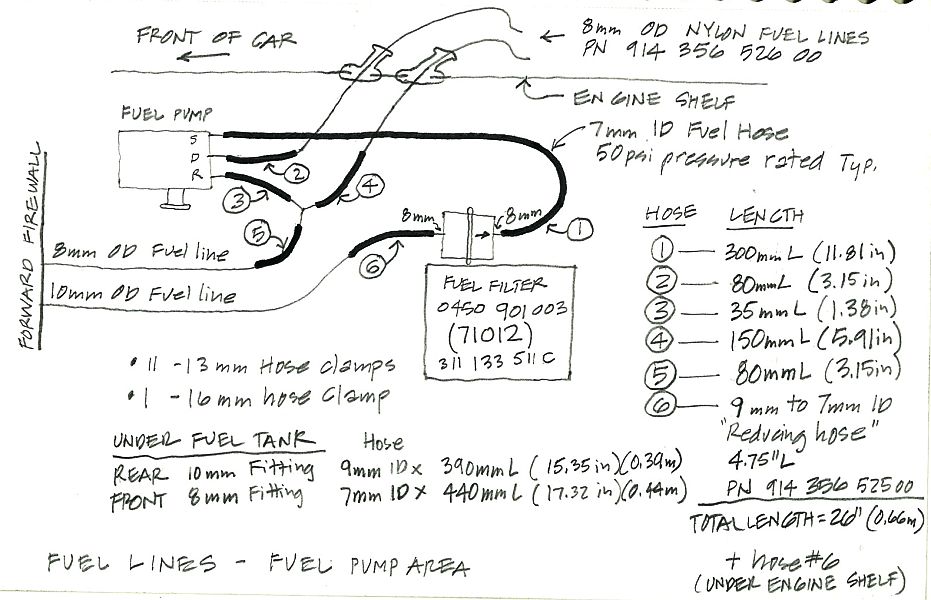 FRONT OF CAR
8mm OD NYLON FUEL LINES
PN 914 356 526 00
ENGINE SHELF
FUEL PUMP
S
D
R
7mm ID Fuel Hose
50psi pressure rated Typ.
FORWARD FIREWALL
2
3
4
5
6
1
8mm
8mm
8mm OD Fuel line
10mm OD Fuel line
FUEL FILTER
0450 901 003
(71012)
311 133 511 C
HOSE LENGTH
1 300mm L (11.81in)
2 80mmL (3.15in)
3 35mmL (1.38in)
4 150mmL (5.91in)
5 80mmL (3.15in)
6 9mm to 7mm ID
"Reducing hose"
4.75"L
PN 914 356 525 00
TOTAL LENGTH = 26" (0.66m)
+ hose #6
(UNDER ENGINE SHELF)
• 11 - 13mm Hose clamps
• 1 - 16mm hose clamp
UNDER FUEL TANK Hose
REAR 10mm Fitting 9mm ID x 390mmL (15.35in)(0.39m)
FRONT 8mm Fitting 7mm ID x 440mmL (17.32in)(0.44m)
FUEL LINES - FUEL PUMP AREA